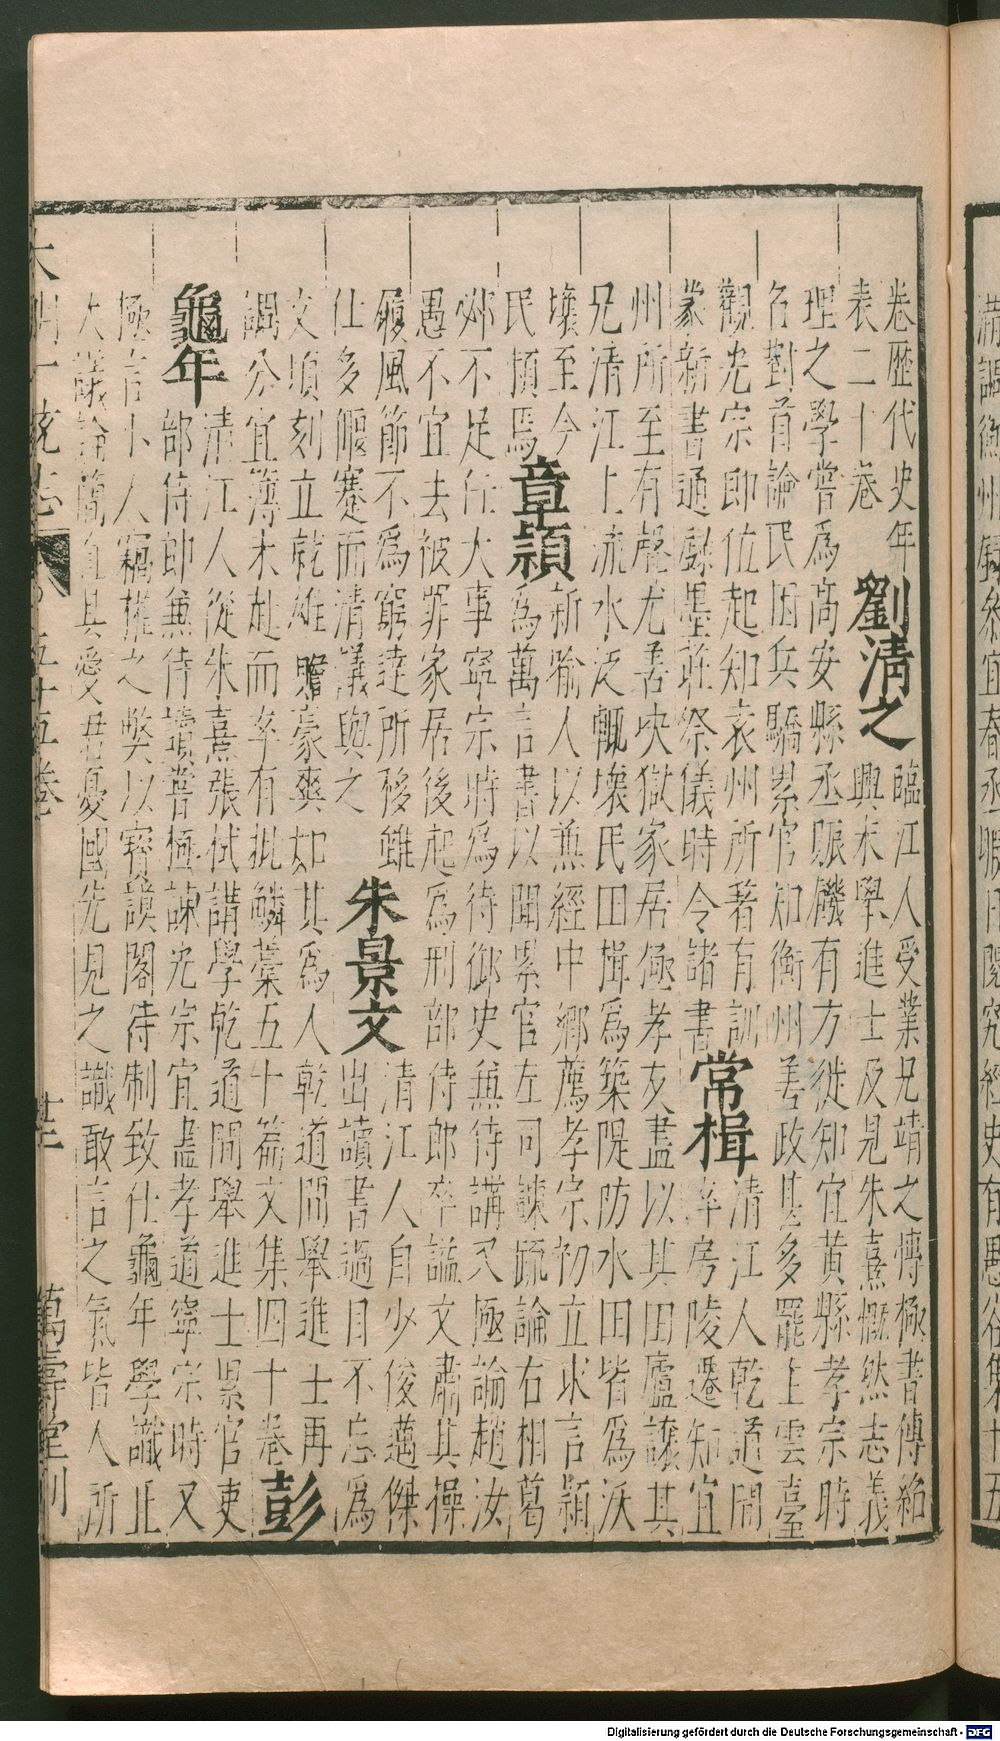 滿謫衡州録參宜春丞暇日閱究經史有愚谷集十五
卷歷代史年
袁二十卷
劉清之
臨江人受業兄靖之慱極書傳紹
興末學進士及見朱熹慨然志義
理之學嘗爲高安縣丞賑饑有方從知宜黃縣孝宗時
召對首論民困兵驕累官知衡州善政甚多罷上雲臺
觀光宗即位起知袁州所著有訓
蒙新書通錄墨莊祭儀時令諸書
常楫
清江人乾道間
率房陵遷知宜
州所至有聲尤善决獄家居極孝友盡以其田廬讓其
兄清江上流水泛輙壞民田揖爲築隄防水田皆爲沃
壤至今
民頼焉
章穎
新喻人以兼經中鄉薦孝宗初立求言穎
爲萬言書以聞累官左司諫疏論右相葛
邲不足任大事寧宗時爲侍御史兼侍講又極論趙汝
愚不宜去被罪家居後起爲刑部侍郎卒諡文肅其操
履風節不爲窮達所移雖
仕多偃蹇而清議與之
朱景文
清江人自少俊邁傑
出讀書過目不忘爲
文頃刻立乾雄贍豪爽如其爲人乾道間舉進士再
調分宜簿未赴而卒有批鱗藁五十篇文集四十卷
彭
龜年
清江人從朱熹張栻講學乾道間舉進士累官吏
部侍郎兼侍讀嘗極諫光宗宜盡孝道寧宗時又
極言小人竊權之獘以寳謨閣待制致仕龜年學識正
大議論簡直其愛君憂國先見之識敢言之氣皆人所
大明一統志 五十五卷 廿三 萬壽堂刊
Digitalisierung gefördert durch die Deutsche Forschungsgemeinschaft - DFG